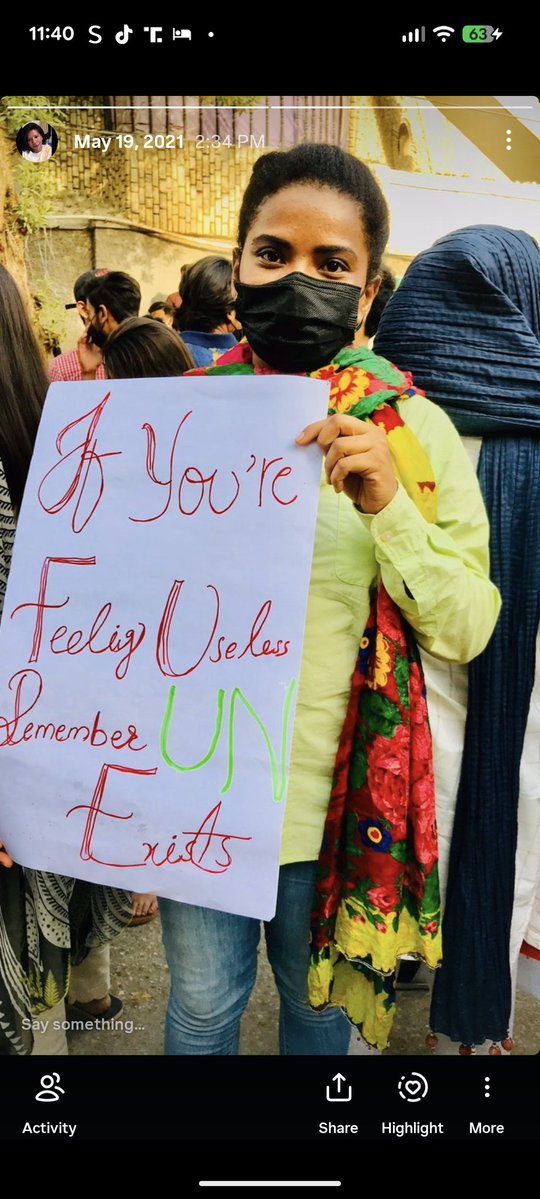 11:40
63
May 19, 2021 2:34 PM
If You're
Feelig Useless
Remember UN
Exists
Say something...
Activity
Share
Highlight
More